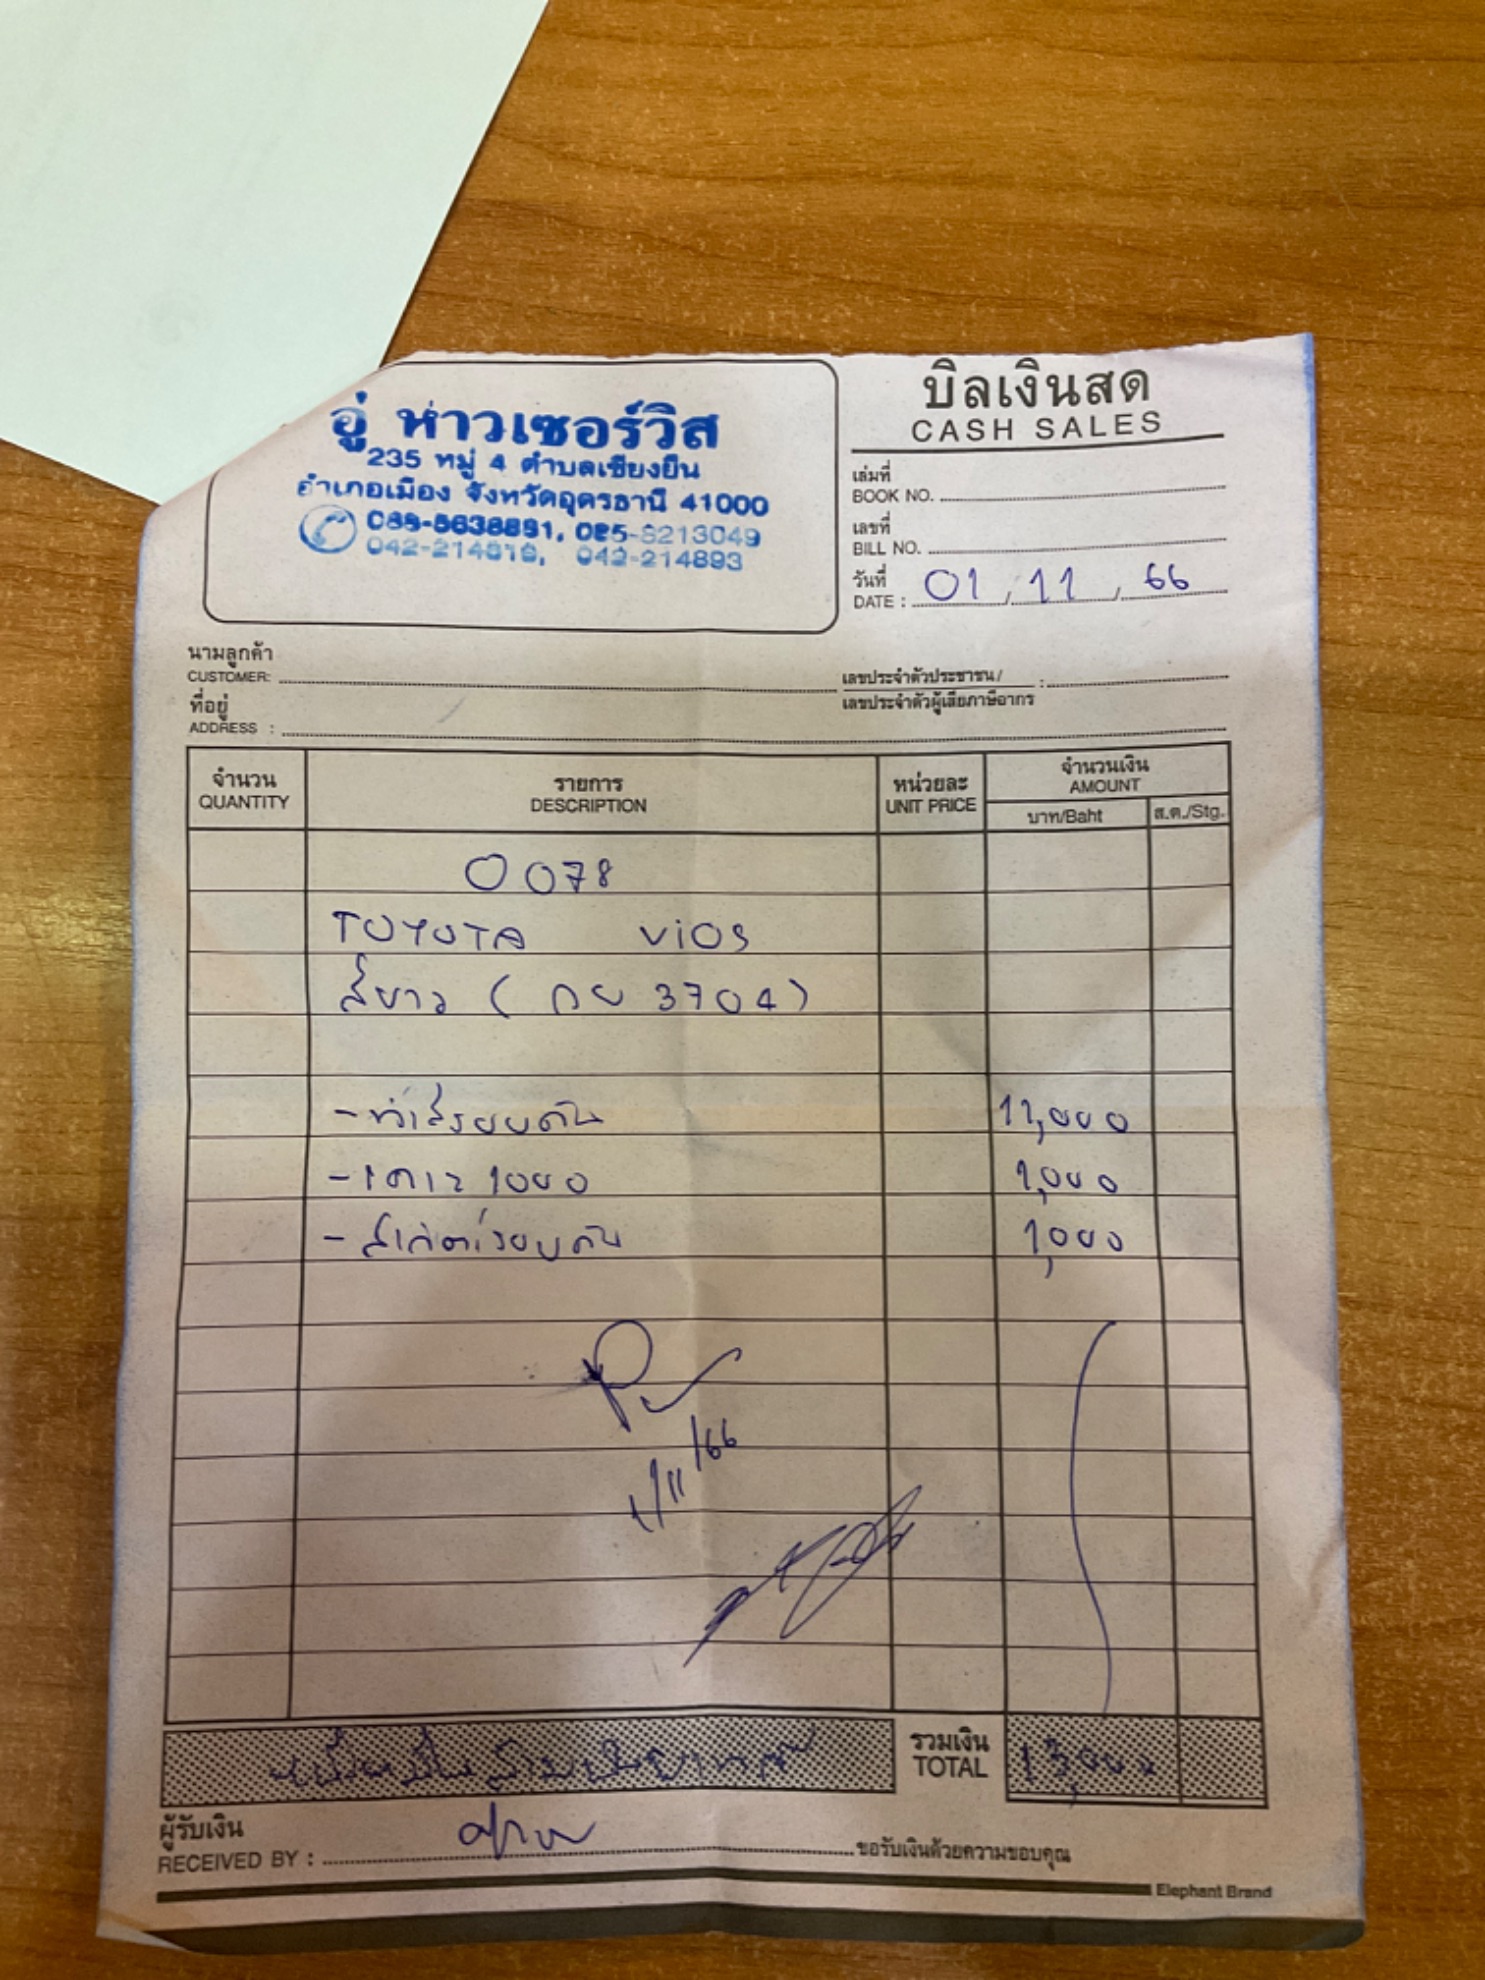 อู่ ห่าวเซอร์วิส
235 หมู่ 4 ตำบลเชียงยืน
อำเภอเมือง จังหวัดอุดรธานี 41000
042-214893
บิลเงินสด
CASH SALES
เล่มที่
BOOK NO.
เลขที่
BILL NO.
วันที่
DATE : 01 / 11 / 66
นามลูกค้า
CUSTOMER:
เลขประจำตัวประชาชน/ :
เลขประจำตัวผู้เสียภาษีอากร
ที่อยู่
ADDRESS :
จำนวน
QUANTITY
รายการ
DESCRIPTION
หน่วยละ
UNIT PRICE
จำนวนเงิน
AMOUNT
บาท/Baht
ส.ต./Stg.
0078
TOYOTA ViOS
สีขาว ( กย 3704 )
- ทำสีรอบคัน 11,000
- เคาะ 1000 1,000
- สเกิตรอบคัน 1,000
1/11/66
หนึ่งหมื่นสามพันบาทถ้วน
รวมเงิน
TOTAL
13,000
ผู้รับเงิน
RECEIVED BY :
ขอรับเงินด้วยความขอบคุณ
Elephant Brand